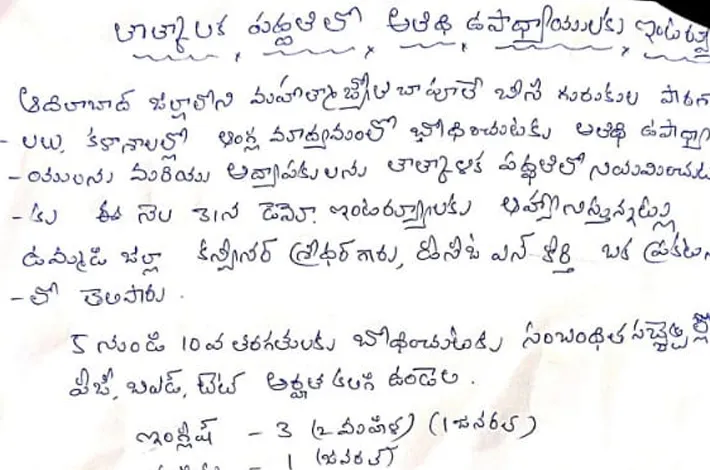 తాత్కాలిక పద్ధతిలో అతిథి ఉపాధ్యాయులకు
ఆదిలాబాద్ జిల్లాలోని మహాత్మా జ్యోతిబా పూలే బీసీ గురుకుల పాఠశా
- లలు, కళాశాలల్లో ఆంగ్ల మాద్యమంలో బోధించుటకు అతిథి ఉపాధ్యా
- యులను మరియు అధ్యాపకులను తాత్కాళిక పద్ధతిలో నియమించుట
- కు ఈ నెల 31న డెమో ఇంటర్వ్యూలకు ఆహ్వానిస్తున్నట్లు
ఉమ్మడి జిల్లా కన్వీనర్ శ్రీధర్ గారు, డీసీఓ ఎన్ కీర్తి ఒక ప్రకటన
- లో తెలిపారు .
5 నుండి 10వ తరగతులకు బోధించుటకు సంబంధిత సబ్జెక్టుల్లో
పీజీ, బీఎడ్, టెట్ అర్హత కలిగి ఉండాలి .
ఇంగ్లీష్ - 3 (2 మహిళ) (1 జనరల్)
- 1 (జనరల్)